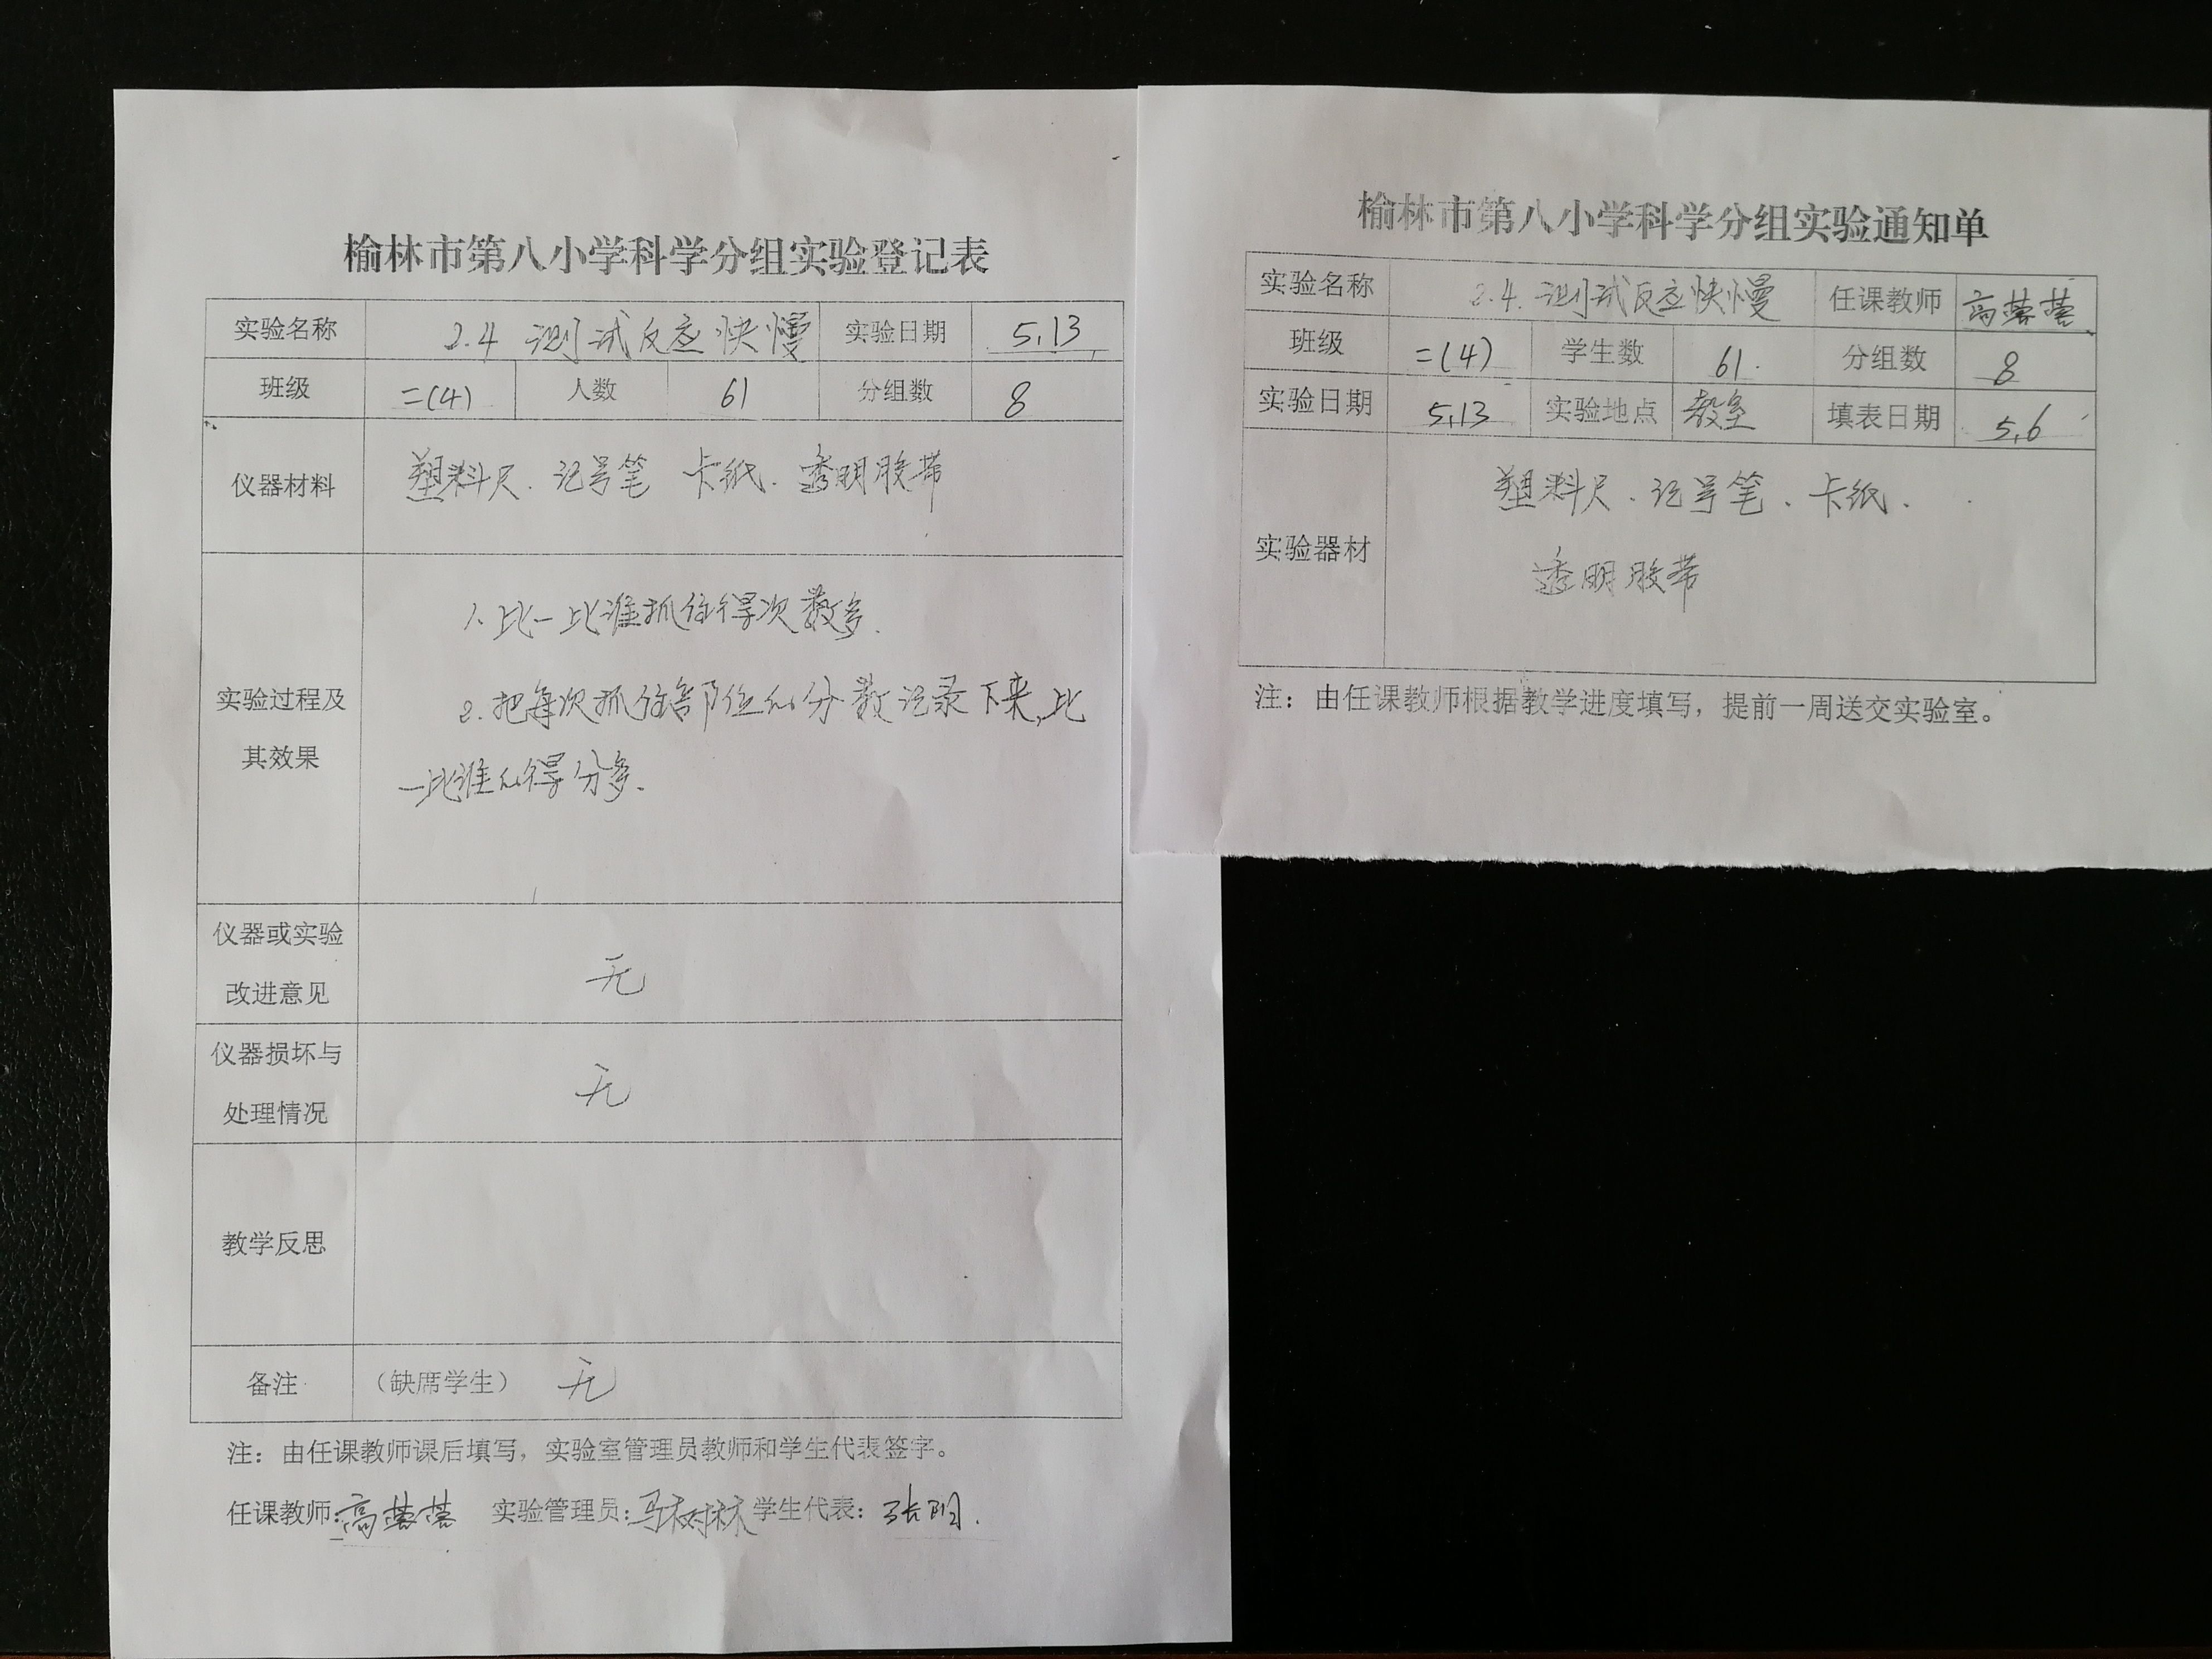 榆林市第八小学科学分组实验登记表
实验名称 2.4 测试反应快慢 实验日期 5.13
班级 二(4) 人数 61 分组数 8
仪器材料 塑料尺、记号笔 卡纸、透明胶带
实验过程及
其效果
1、比一比谁抓住得次数多.
2、把每次抓住部位的分数记录下来,比
一比谁的得分多.
仪器或实验
改进意见
无
仪器损坏与
处理情况
无
教学反思
备注 (缺席学生) 无
注：由任课教师课后填写，实验室管理员教师和学生代表签字。
任课教师: 高 实验管理员: 马树林 学生代表: 张明.
榆林市第八小学科学分组实验通知单
实验名称 2.4. 测试反应快慢 任课教师 高
班级 二(4) 学生数 61. 分组数 8
实验日期 5.13 实验地点 教室 填表日期 5.6
实验器材
塑料尺、记号笔、卡纸、
透明胶带
注：由任课教师根据教学进度填写，提前一周送交实验室。